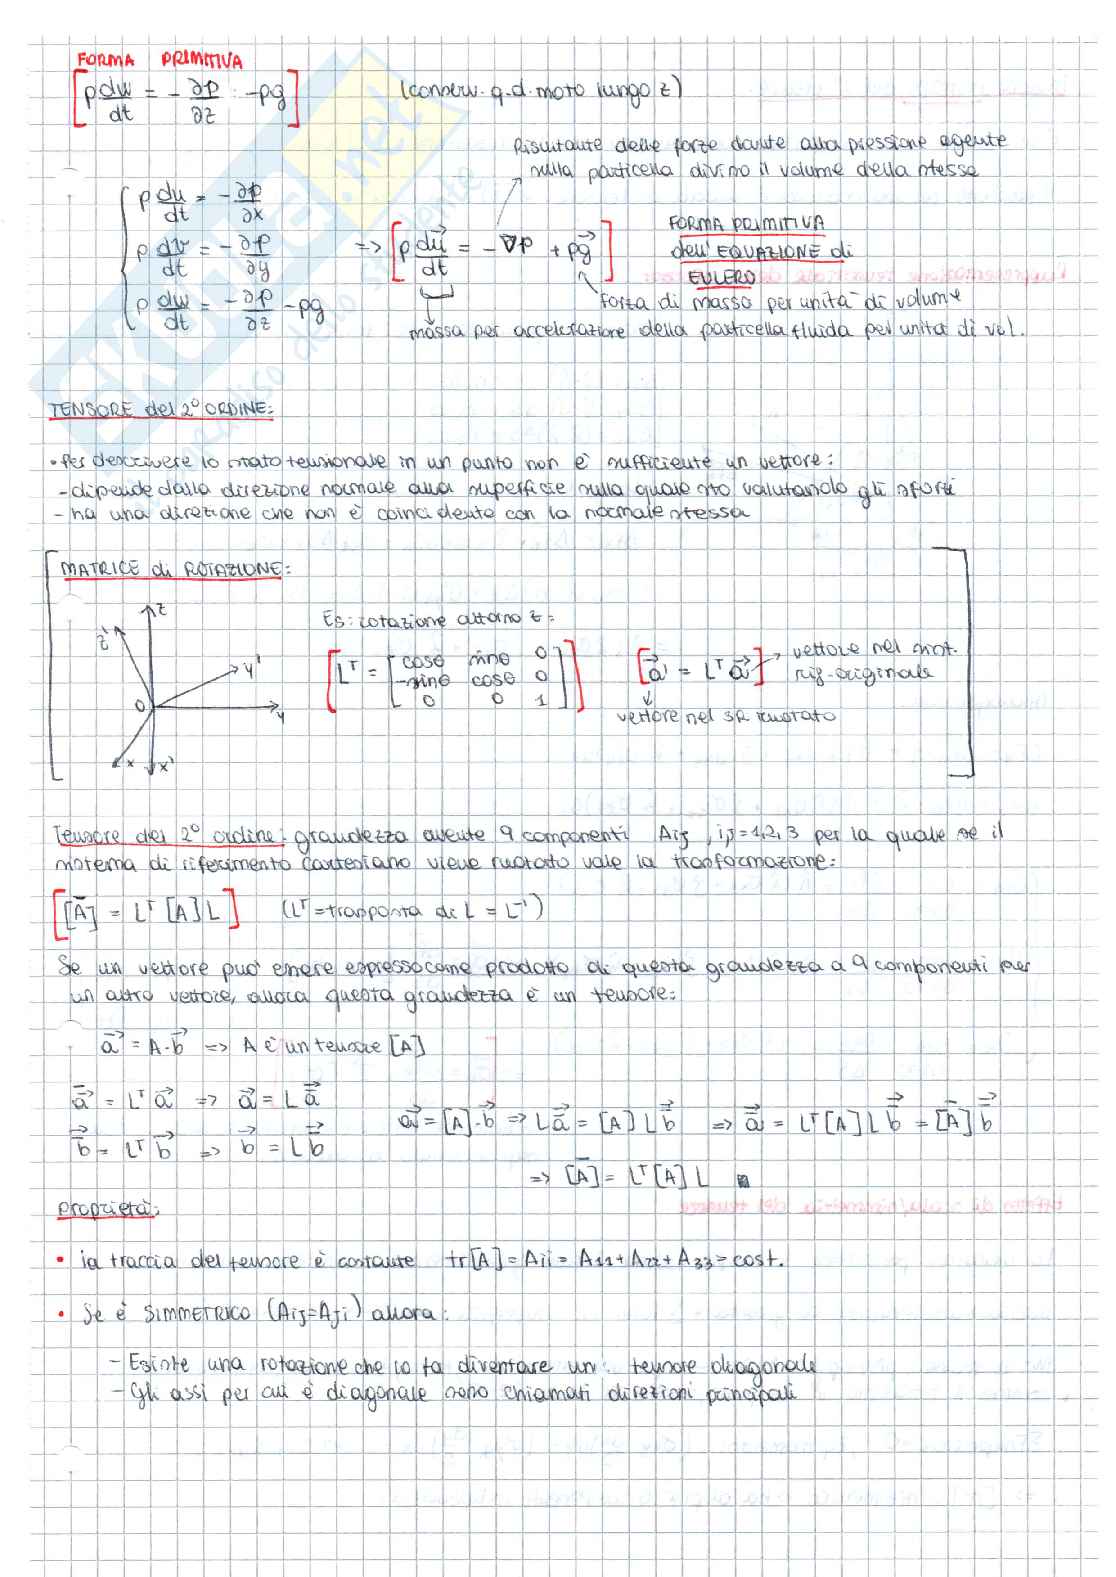 FORMA PRIMITIVA
[ρ dw/dt = - ∂p/∂z - ρg] (conserv. q.d.moto lungo z)
Risultante delle forze dovute alla pressione agente
sulla particella diviso il volume della stessa
{ρ du/dt = - ∂p/∂x
ρ dv/dt = - ∂p/∂y
ρ dw/dt = - ∂p/∂z - ρg
=> [ρ du⃗/dt = - ∇p + ρg⃗]
FORMA PRIMITIVA
dell'EQUAZIONE di
EULERO
Forza di massa per unità di volume
massa per accelerazione della particella fluida per unità di vol.
TENSORE del 2° ORDINE:
• Per descrivere lo stato tensionale in un punto non è sufficiente un vettore:
- dipende dalla direzione normale alla superficie sulla quale sto valutando gli sforzi
- ha una direzione che non è coincidente con la normale stessa
MATRICE di ROTAZIONE:
z
z'
y'
0
y
x
x'
Es: rotazione attorno z:
[Lᵀ = [cosθ sinθ 0
-sinθ cosθ 0
0 0 1]]
[a⃗' = Lᵀ a⃗] → vettore nel sist.
rif. originale
vettore nel SR ruotato
Tensore del 2° ordine: grandezza avente 9 componenti Aij, i,j=1,2,3 per la quale se il
sistema di riferimento cartesiano viene ruotato vale la trasformazione:
[[Ā] = Lᵀ [A] L] (Lᵀ = trasposta di L = L⁻¹)
Se un vettore può essere espresso come prodotto di questa grandezza a 9 componenti per
un altro vettore, allora questa grandezza è un tensore:
a⃗ = A·b⃗ => A è un tensore [A]
ā⃗ = Lᵀ a⃗ => a⃗ = L ā⃗
b̄⃗ = Lᵀ b⃗ => b⃗ = L b̄⃗
a⃗ = [A]·b⃗ => L ā⃗ = [A] L b̄⃗ => ā⃗ = Lᵀ [A] L b̄⃗ = [Ā] b̄⃗
=> [Ā] = Lᵀ [A] L ■
Proprietà:
• la traccia del tensore è costante tr[A] = Aii = A11 + A22 + A33 = cost.
• Se è SIMMETRICO (Aij=Aji) allora:
- Esiste una rotazione che lo fa diventare un tensore diagonale
- Gli assi per cui è diagonale sono chiamati direzioni principali